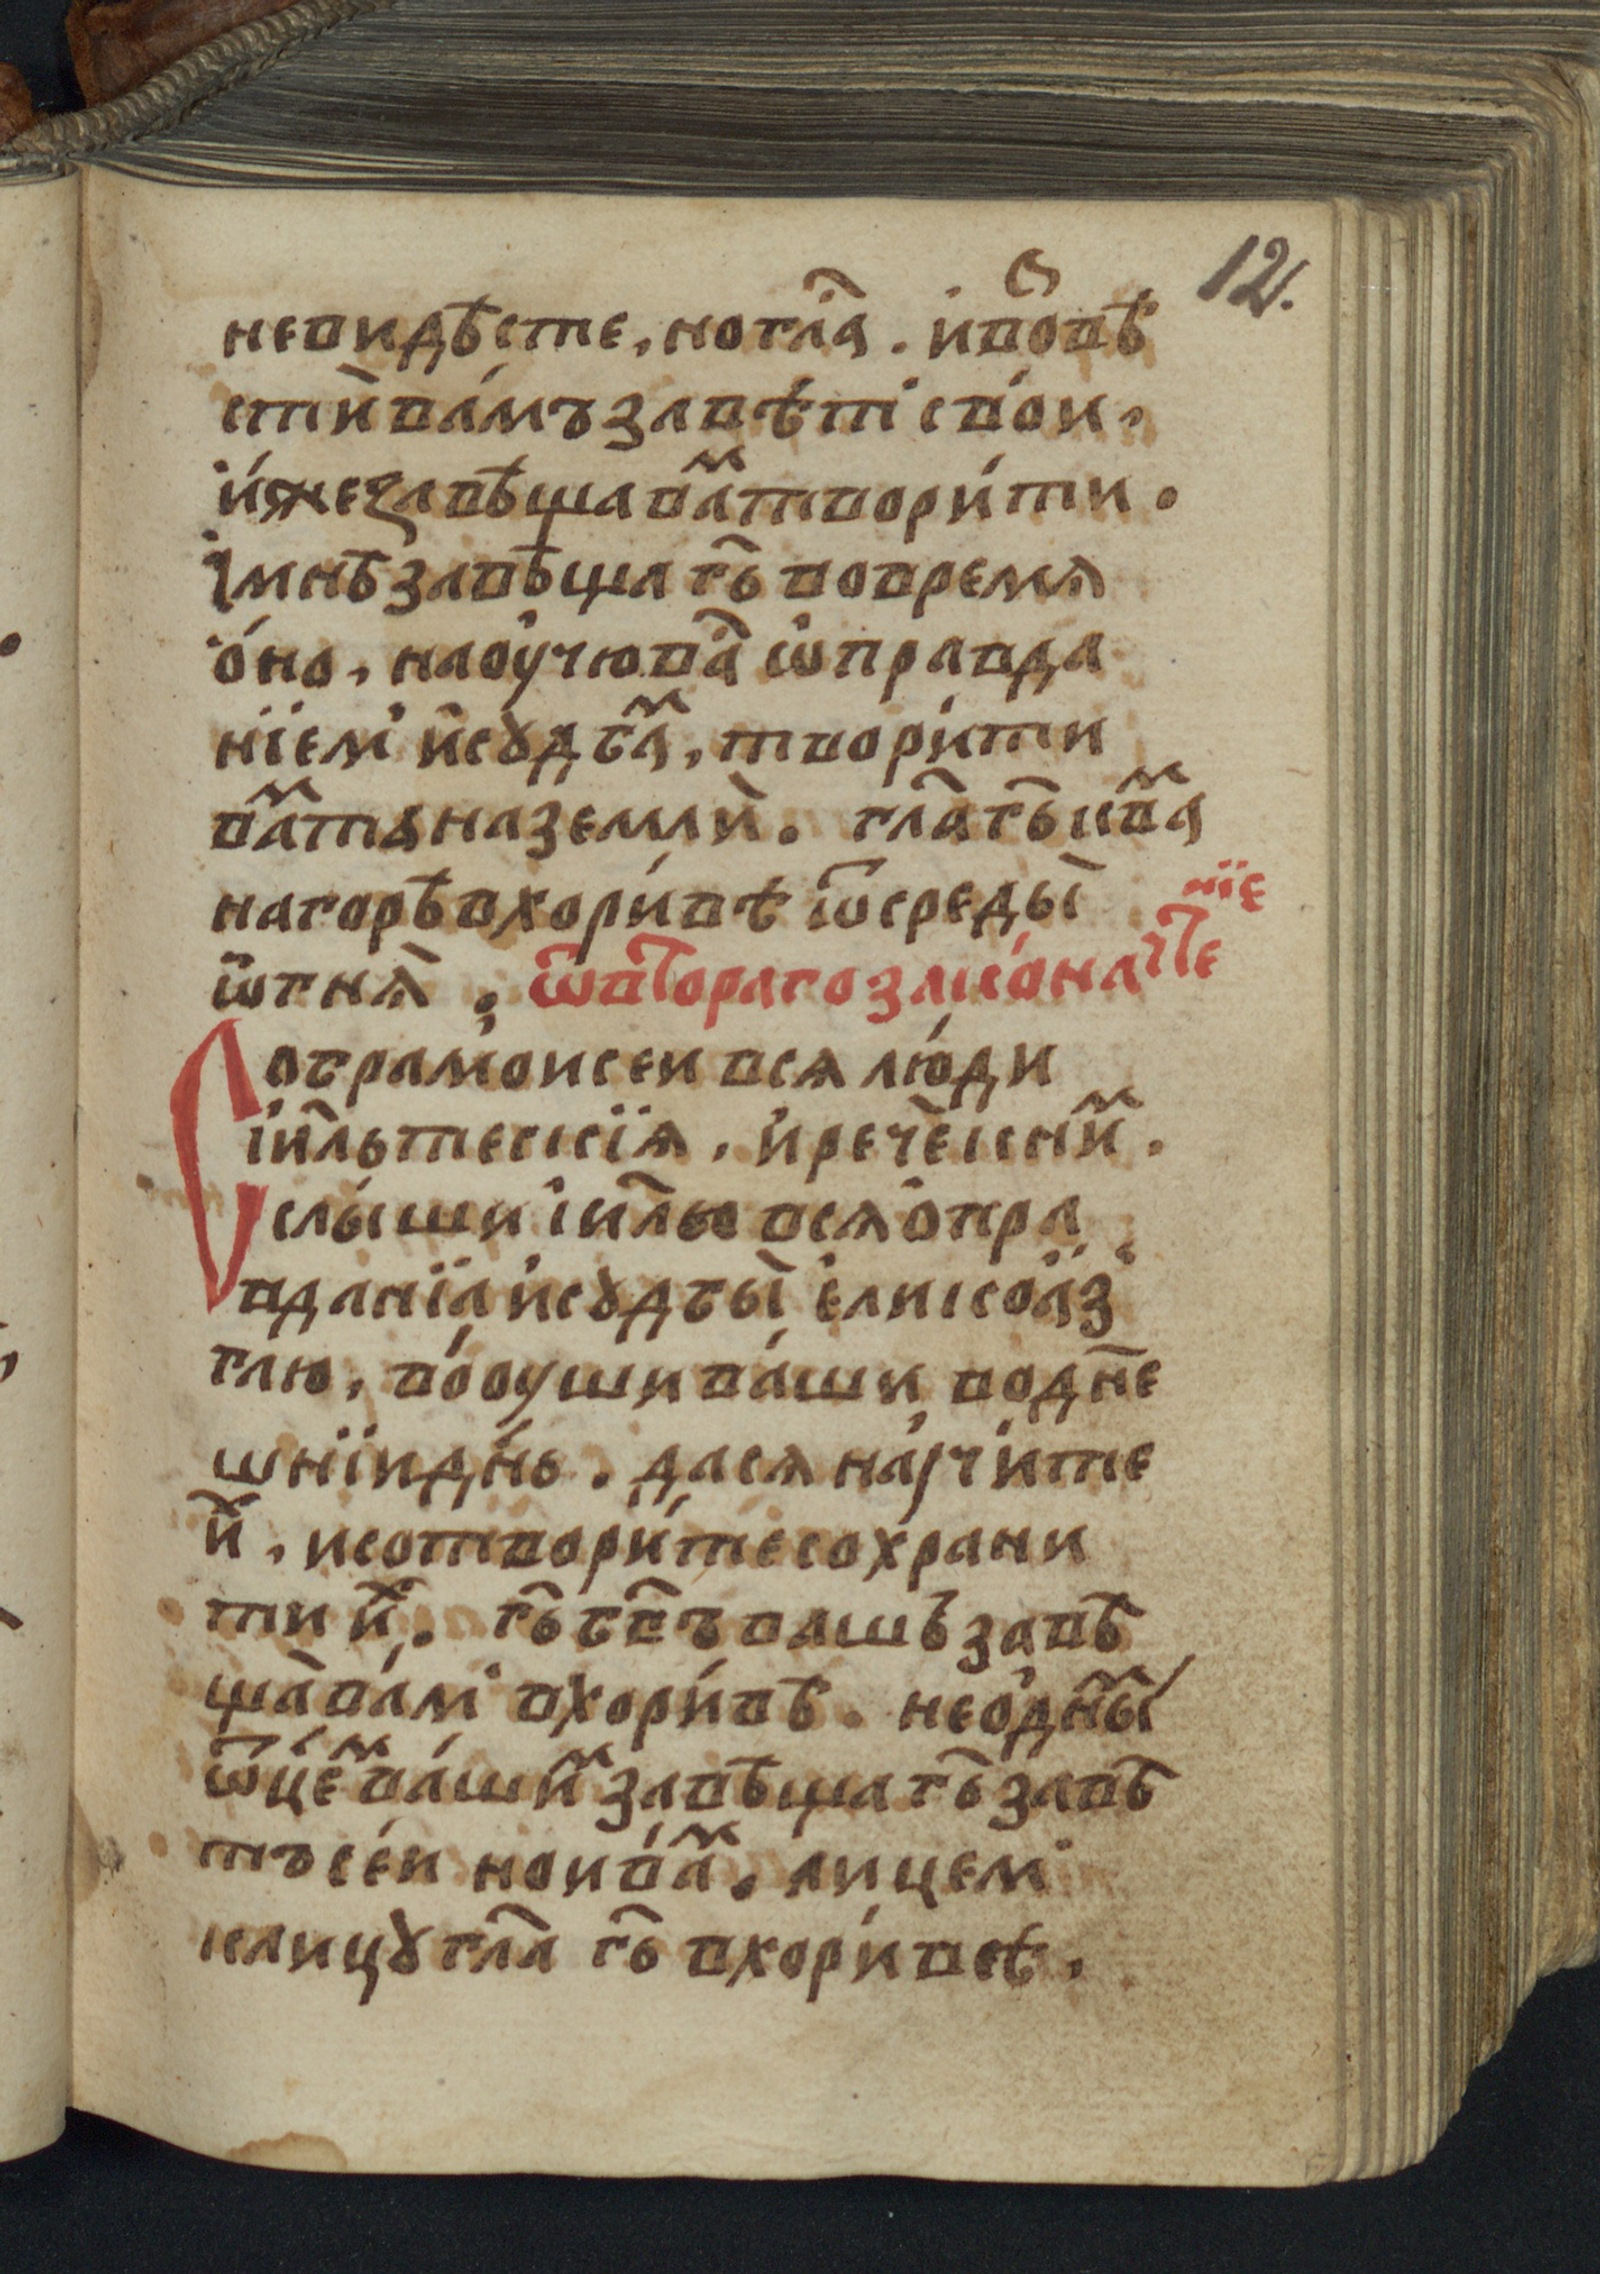 12.
невидѣсте, но гл҃а. и҆ повѣ
сти вамъ завѣтъ свои,
и҆же заповѣща ва̾ творити.
І҆ мнѣ заповѣща гь҃ во время
о҆но, наоучю ва̀ ѡ҆правда
ніемъ и҆ сꙋдба̾, творити
ва̾ та на земли. гл҃а гь҃ к ва̾
на горѣ в хоривѣ ѿ среды
ѡ҆гня. ѿ втораго закона чте
ніе
Собра моисеи вся люди
і҆ил҃ьтескія, и҆ рече к ни̾.
слыши і҆ил҃ю вся опра
вданія и҆ сꙋдбы е҆лико а҆зъ
гл҃ю, во оуши ваши в дне
шніи днь. да ся научите
и҆, и сотворите сохрани
ти и҆. гь҃ бг҃ъ вашь завѣ
ща вамъ в хоривѣ. не о҆дны
ѿце̾ ваши̾ завѣща гь҃ завѣ
тъ сеи но и ва̾. лицемъ
к лицꙋ гл҃а гь҃ в хоривѣ,